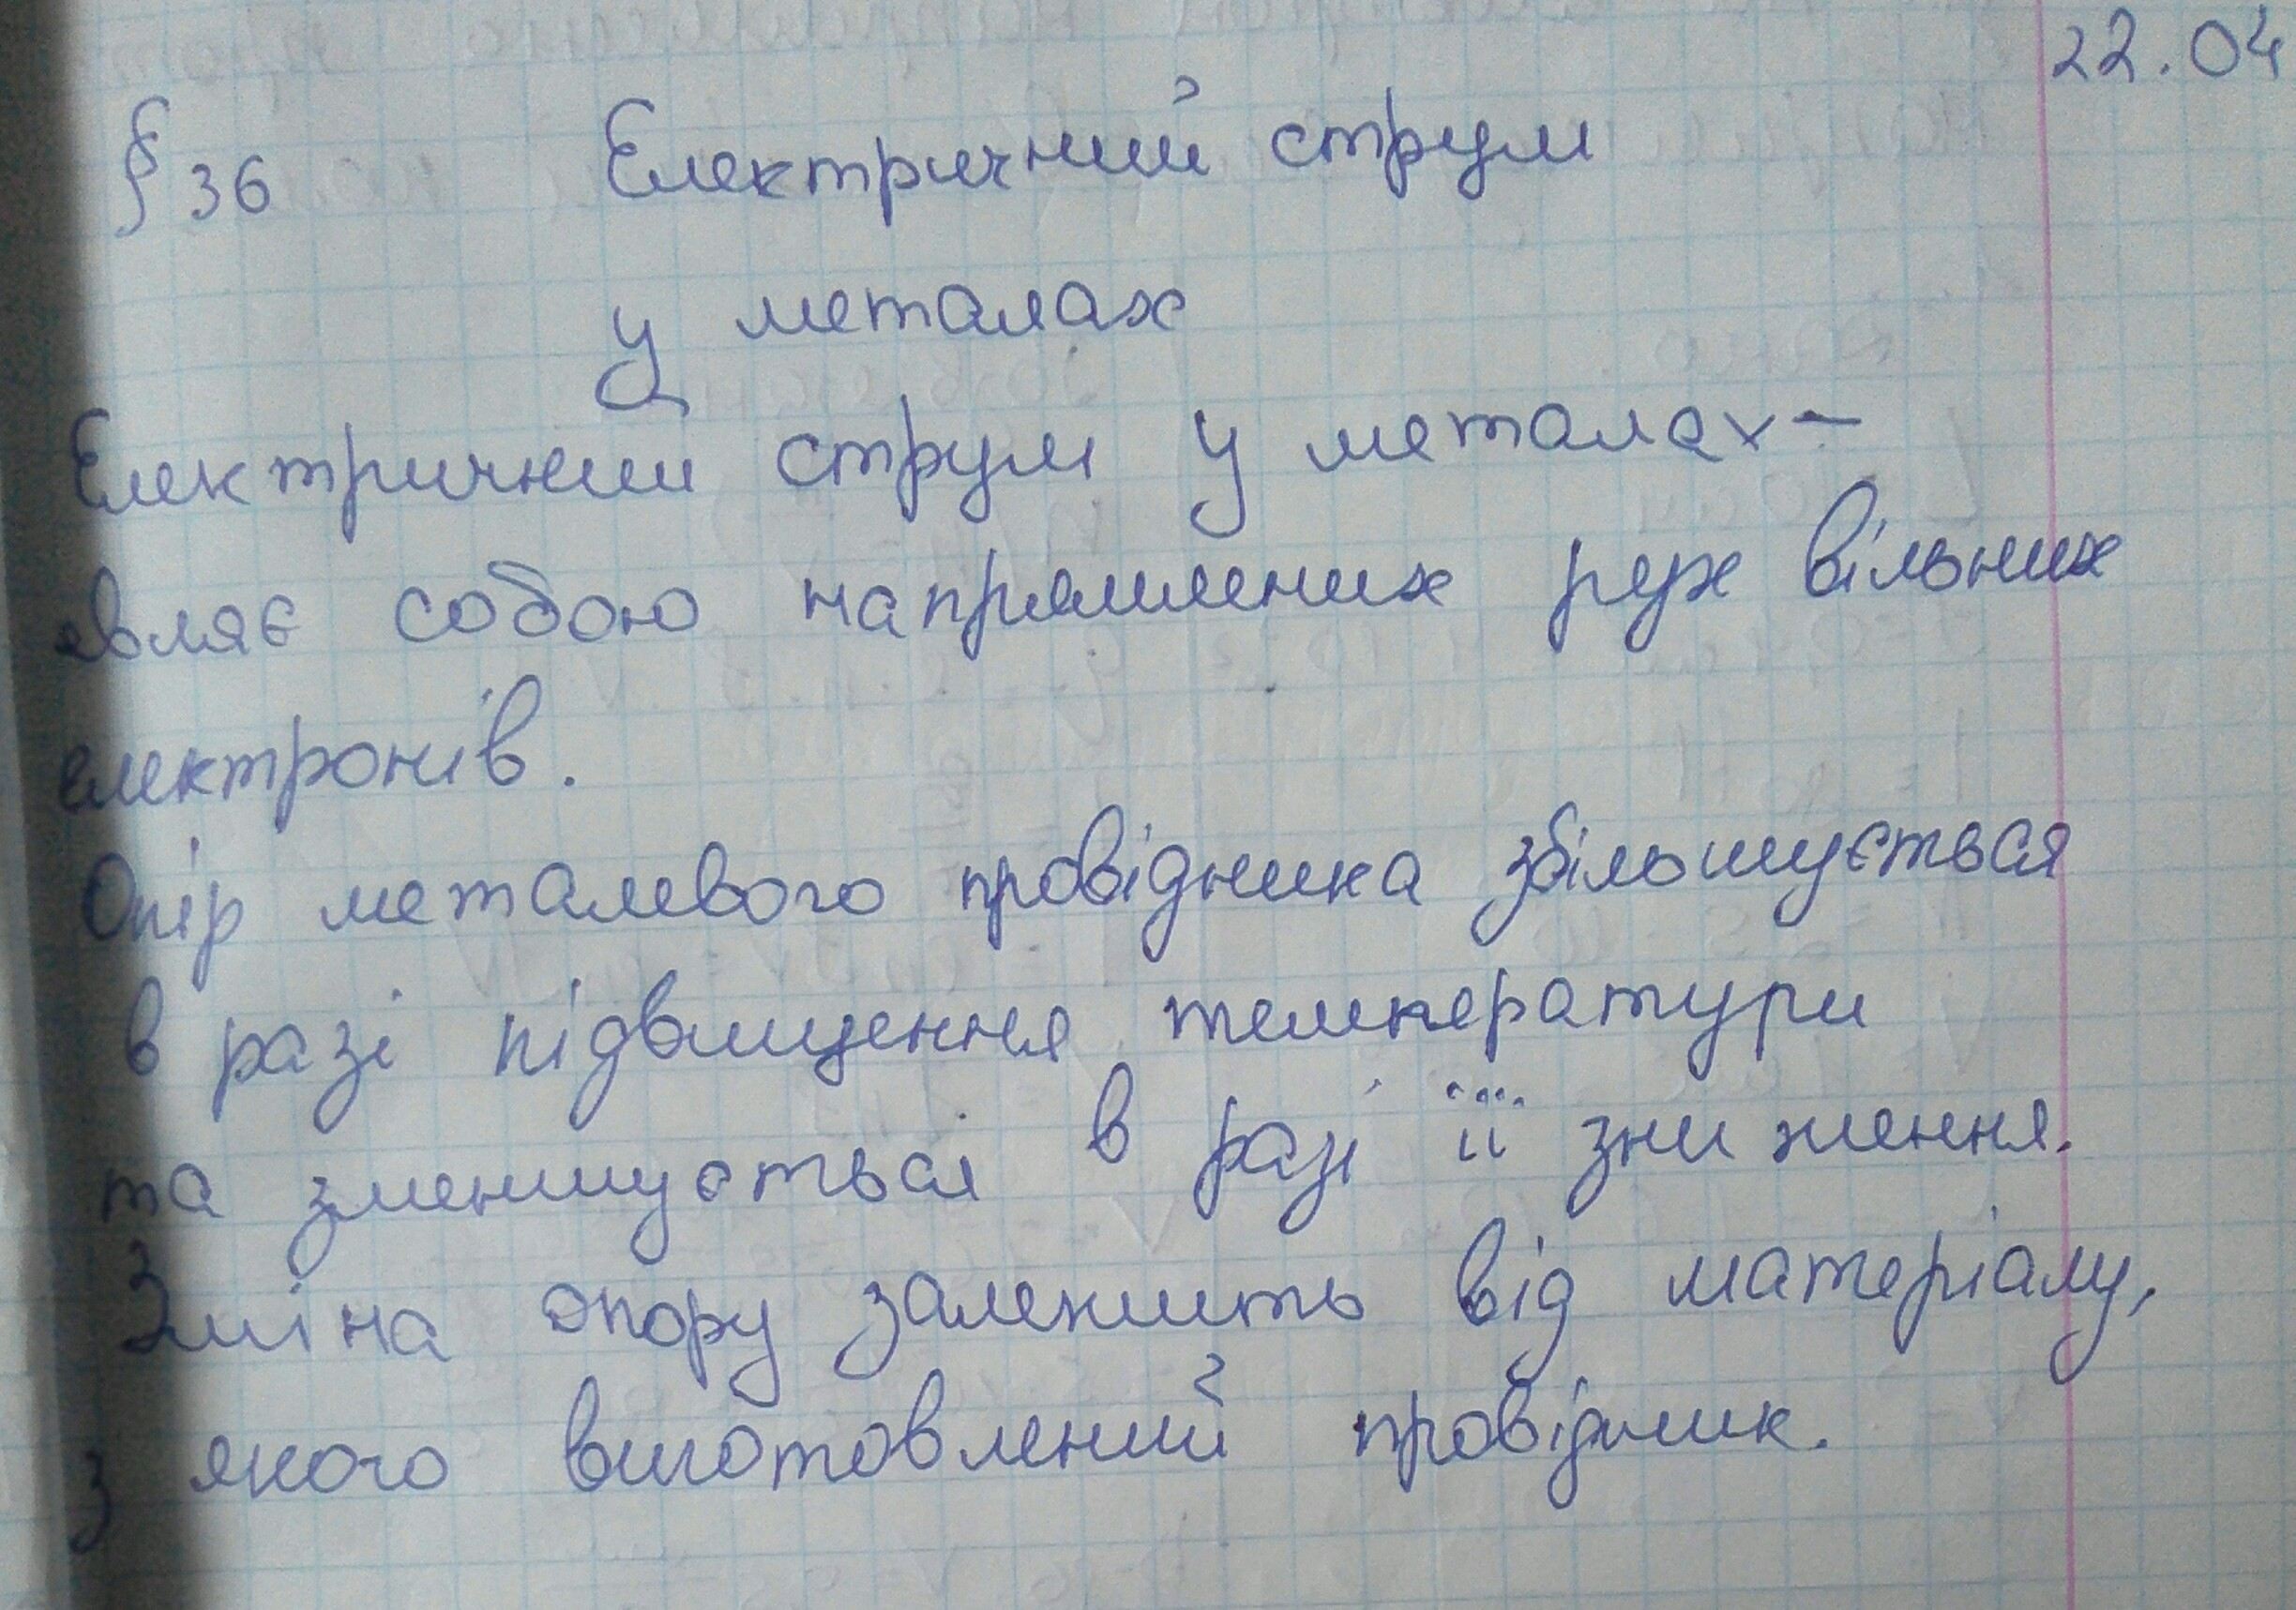 22.04
§ 36 Електричний струм
у металах
Електричнии струм у металах -
являє собою напрямлених рух вільних
електронів.
Опір металевого провідника збільшується
в разі підвищення температури
та зменшується в разі її зниження.
Зміна опору залежить від матеріалу,
з якого виготовлений провідник.